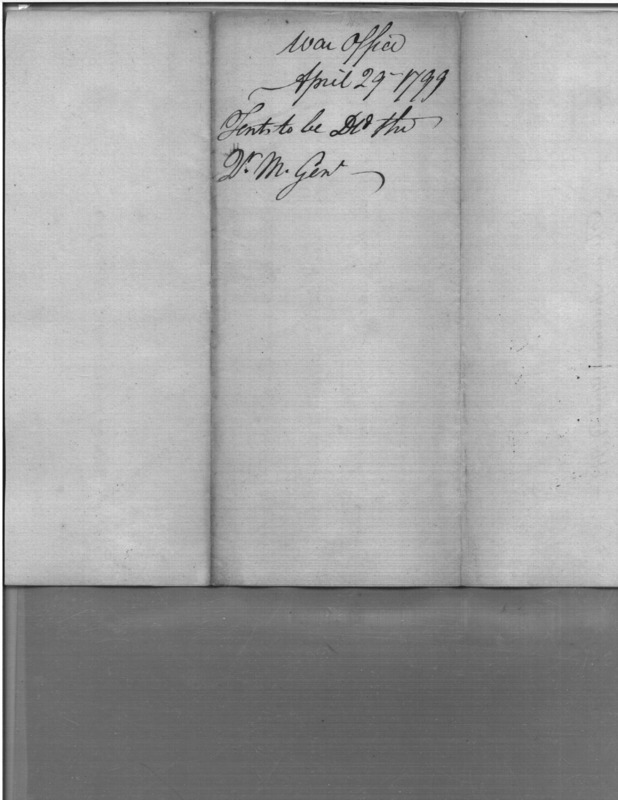 War Office
April 29 1799
Tents to be Dld the
Qr. M. Genl